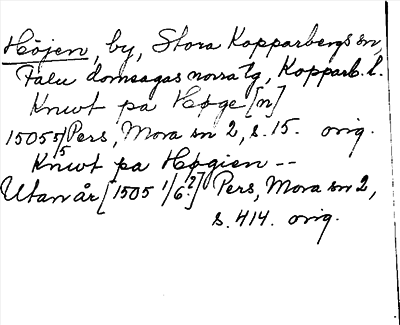 Höjen, by, Stora Kopparbergs sn,
Falu domsagas norra tg, Kopparb. l.
Knwt pa Høge [n]
1505 5/5 Pers, Mora sn 2, s. 15. orig.
Knwt pa Høgien --
Utan år [1505 1/6?] Pers, Mora sn 2,
s. 414. orig.